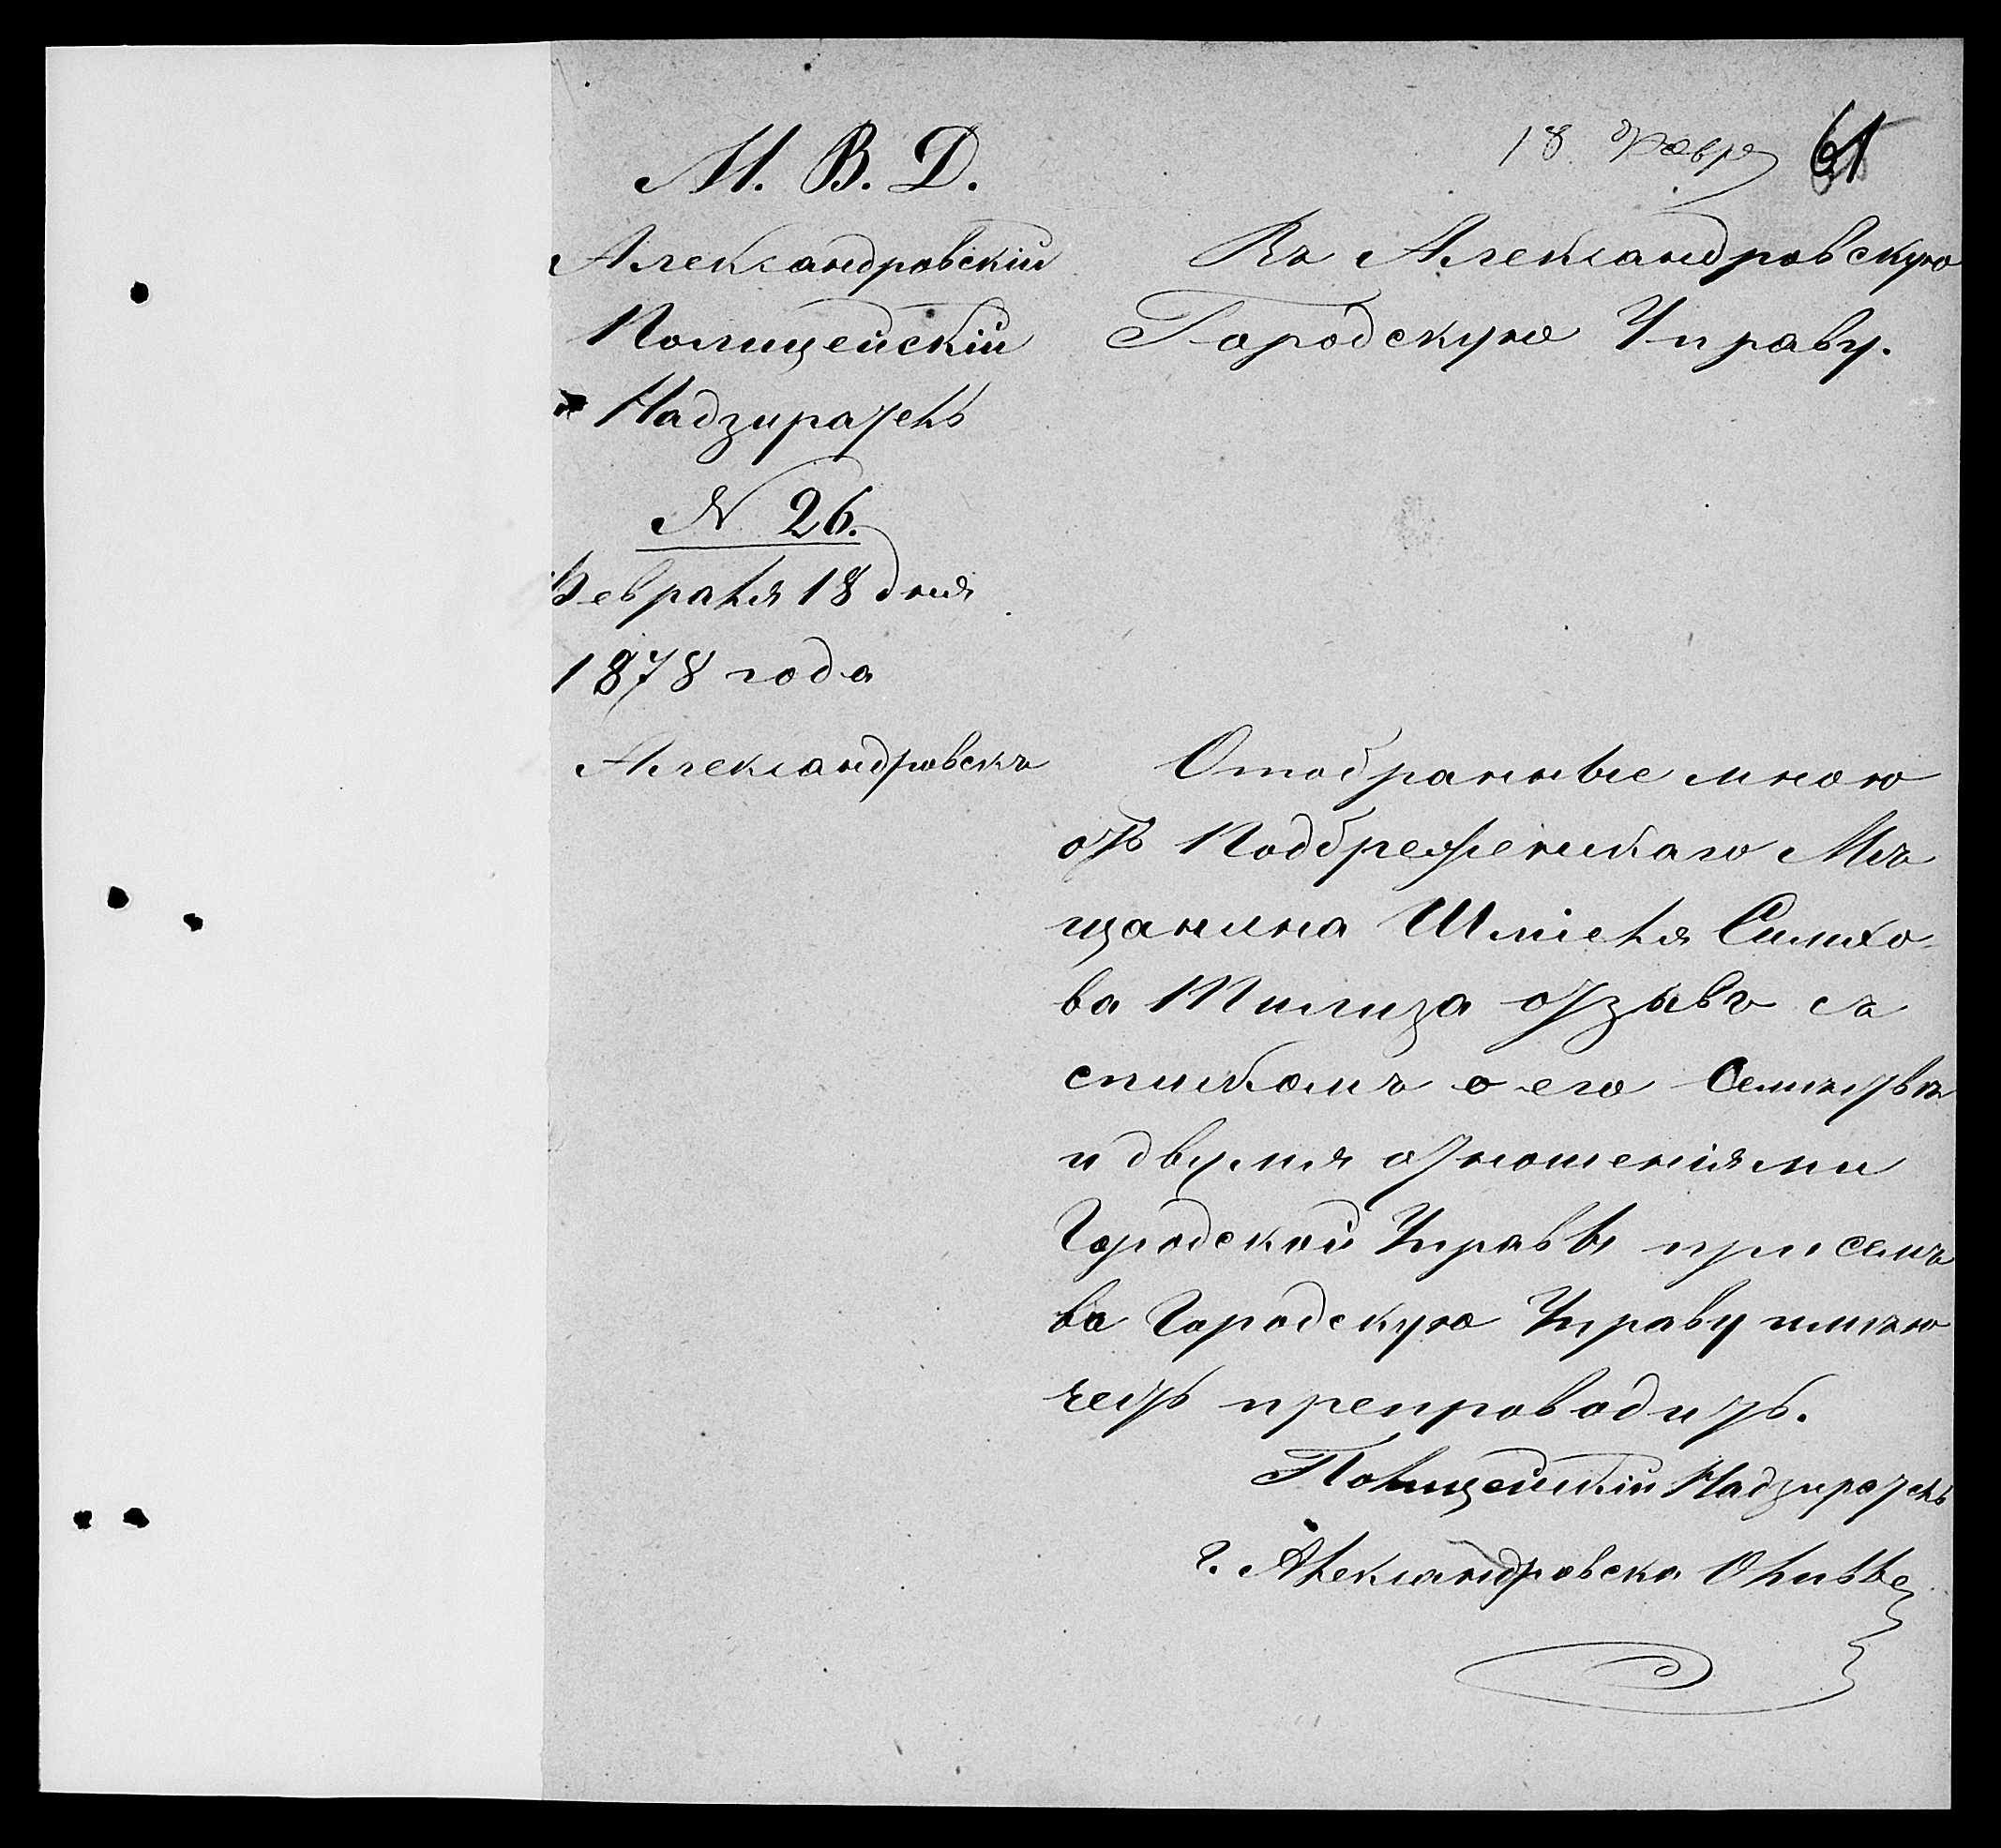 М. В. Д.
Александровскій
Полицейскій
Надзиратель
N 26.
Февраля 18 дня
1878 года
Александровскъ
18 Февр 61
Въ Александровскую
Городскую Управу.
Отобранные мною
отъ Подбреженскаго Мѣ
щанина Шміеля Симхо-
ва отзывъ съ
спискомъ о его Семѣствѣ
и двумя отношеніями
Городской Управы при семъ
въ Городскую Управу имѣю
честь препроводить.
Полицейскій Надзиратель
г. Александровска